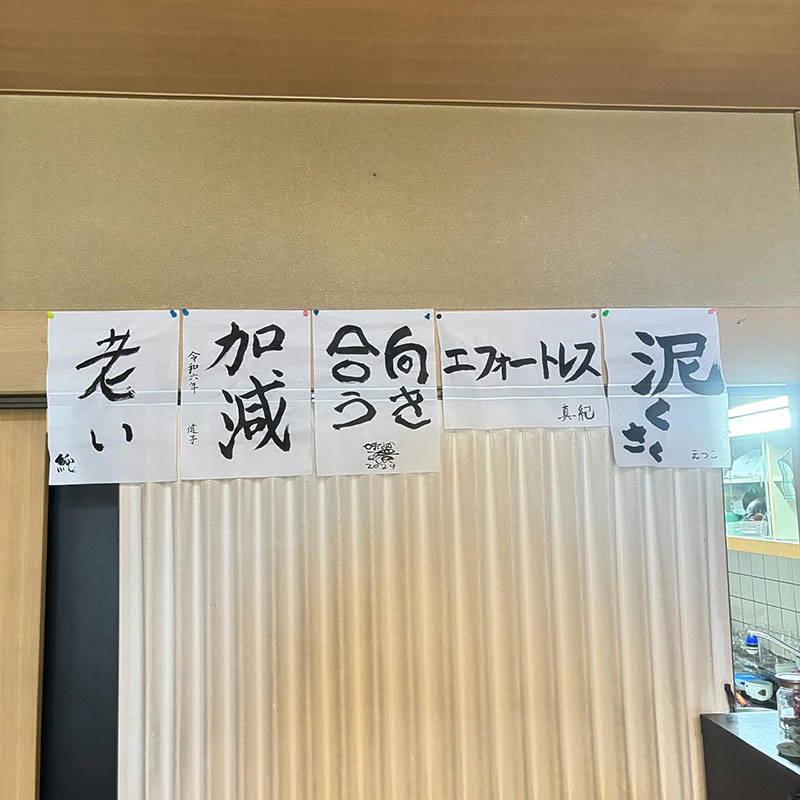 老い
純
加減
令和六年
道子
向き
合う
2024
エフォートレス
真紀
泥く
さく
えつこ